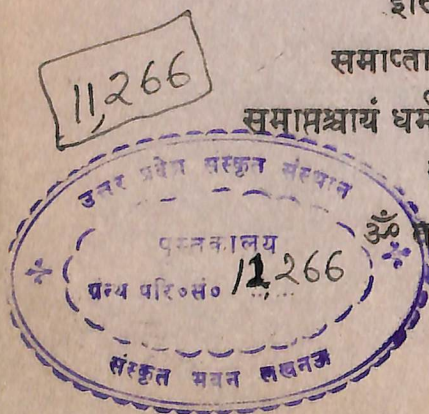 11,266
समाप्ता
समाप्तश्चायं
उत्तर प्रदेश संस्कृत संस्थान
पुस्तकालय
ॐ
ग्रन्थ परि०सं० 11,266
संस्कृत भवन लखनऊ